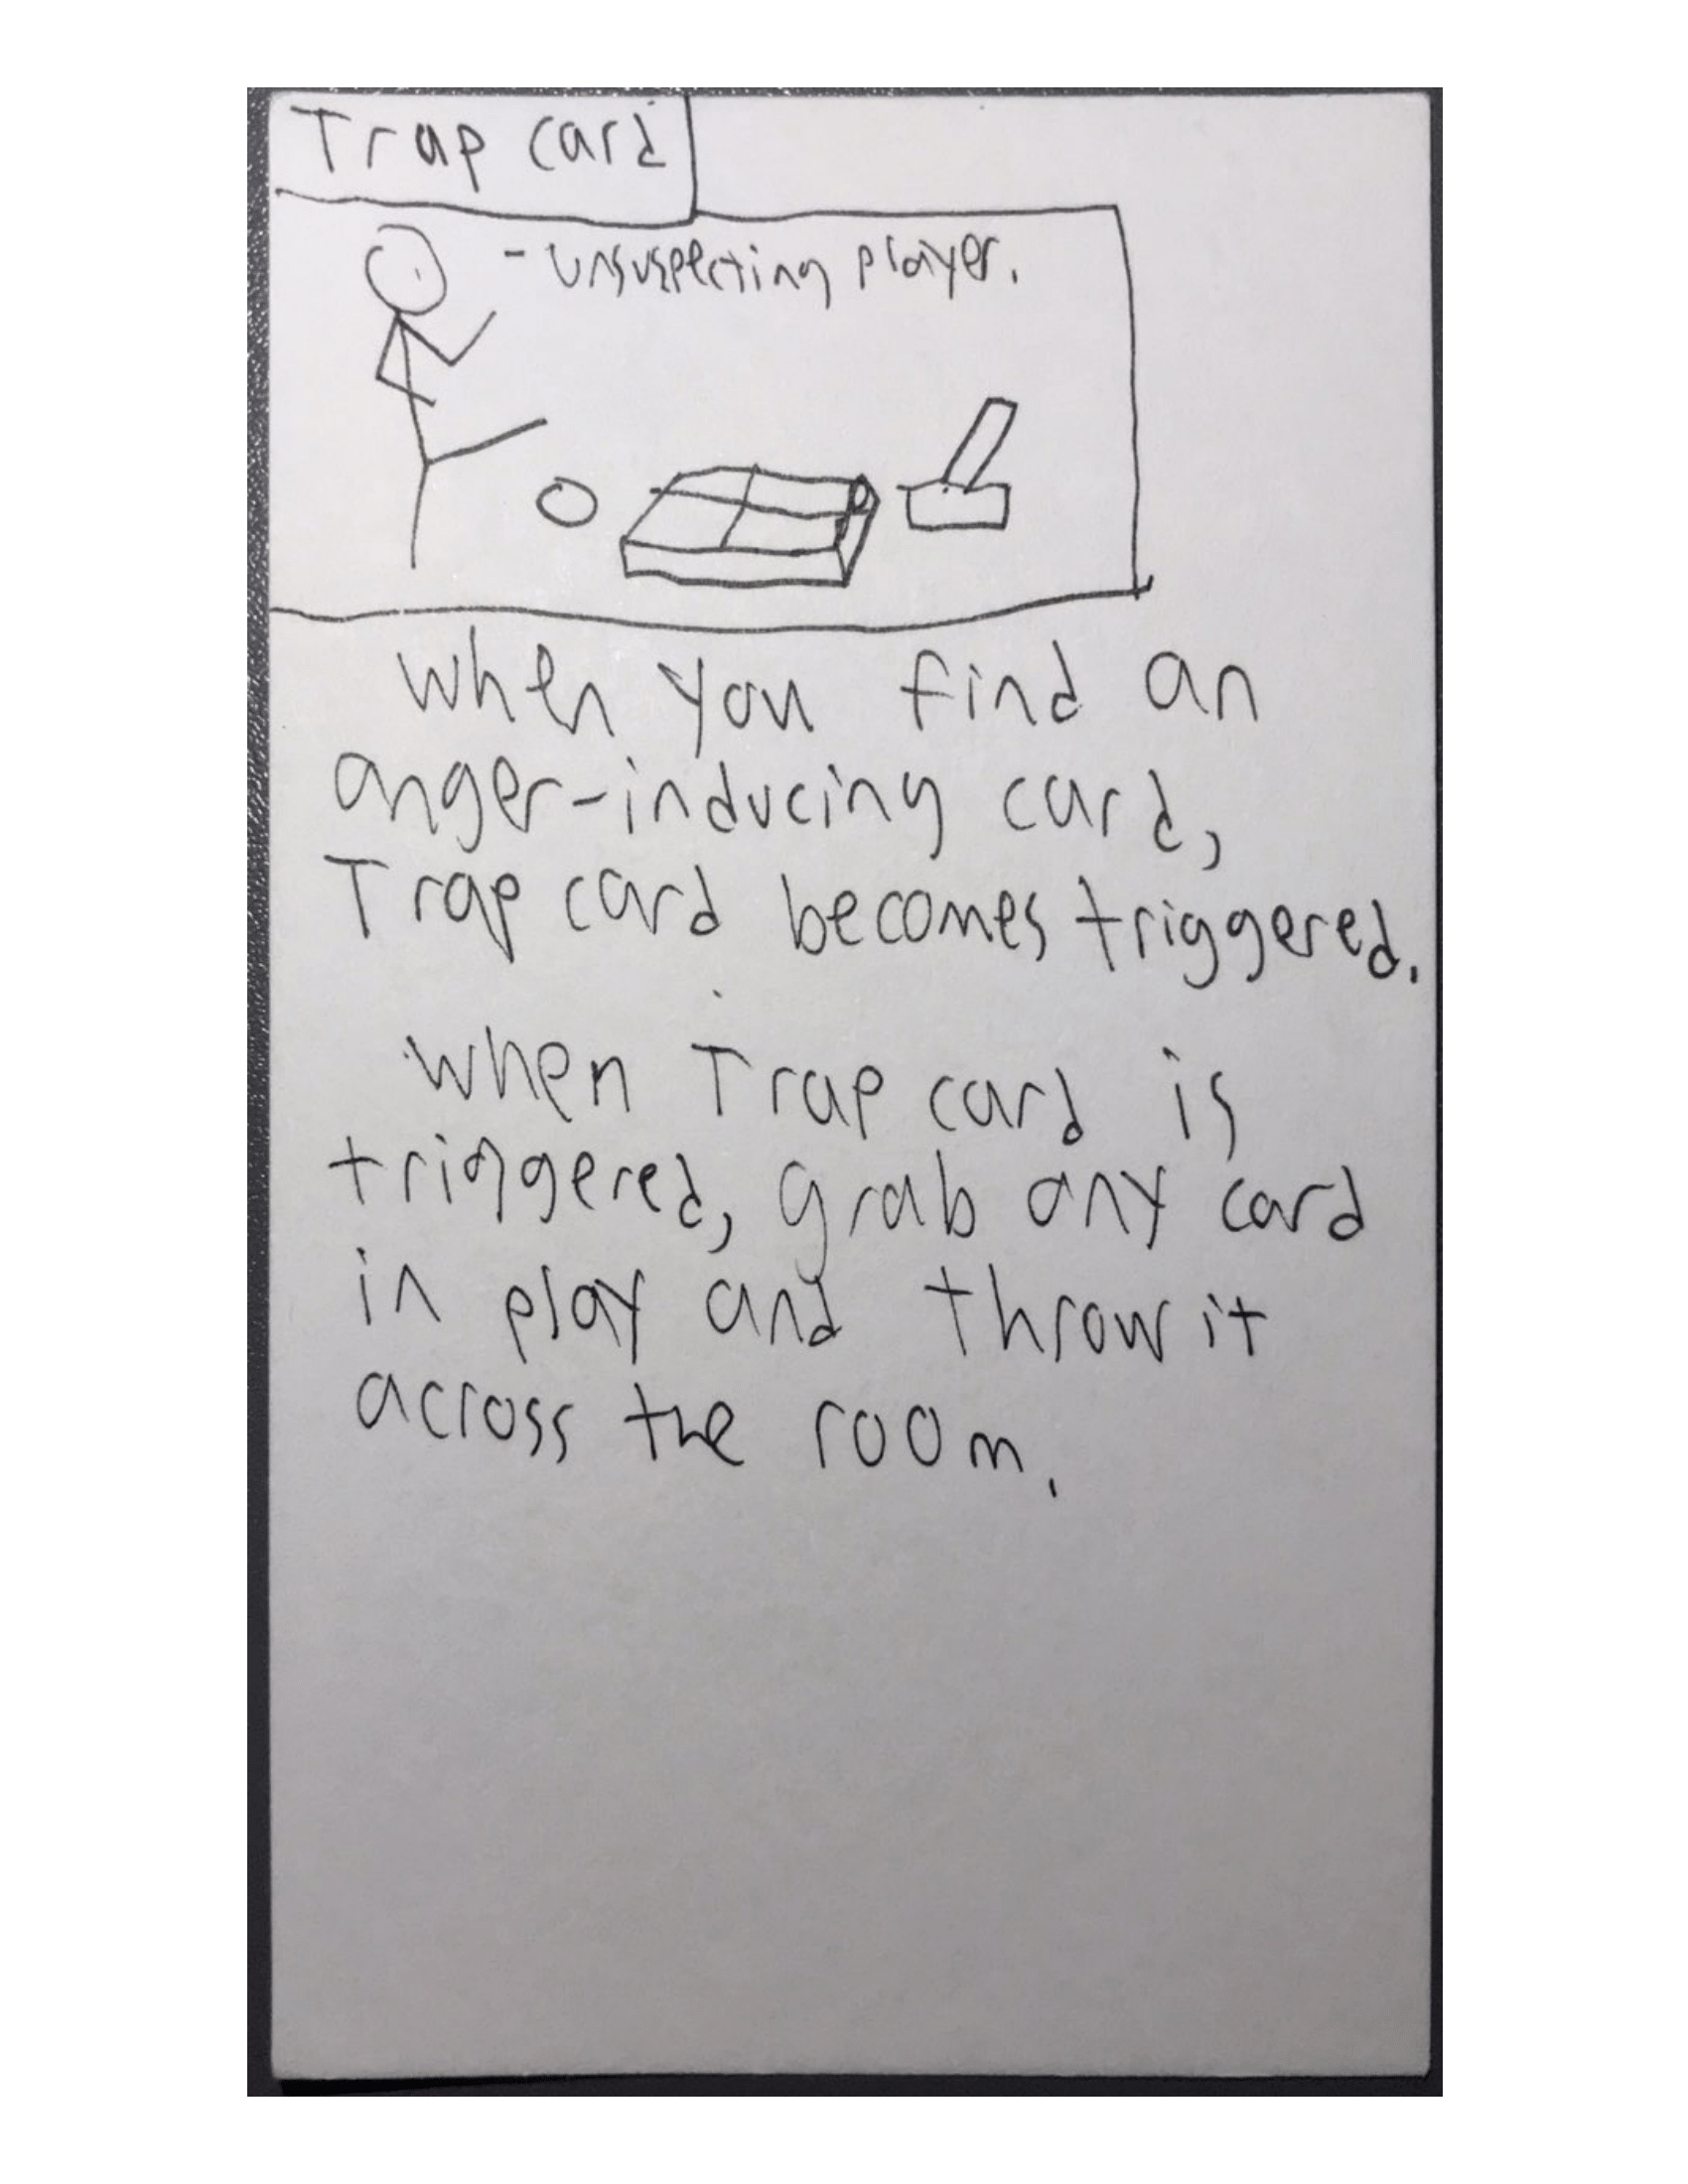 Trap card
- unsuspecting player.
when you find an
anger-inducing card,
Trap card becomes triggered.
when Trap card is
triggered, grab any card
in play and throw it
across the room.